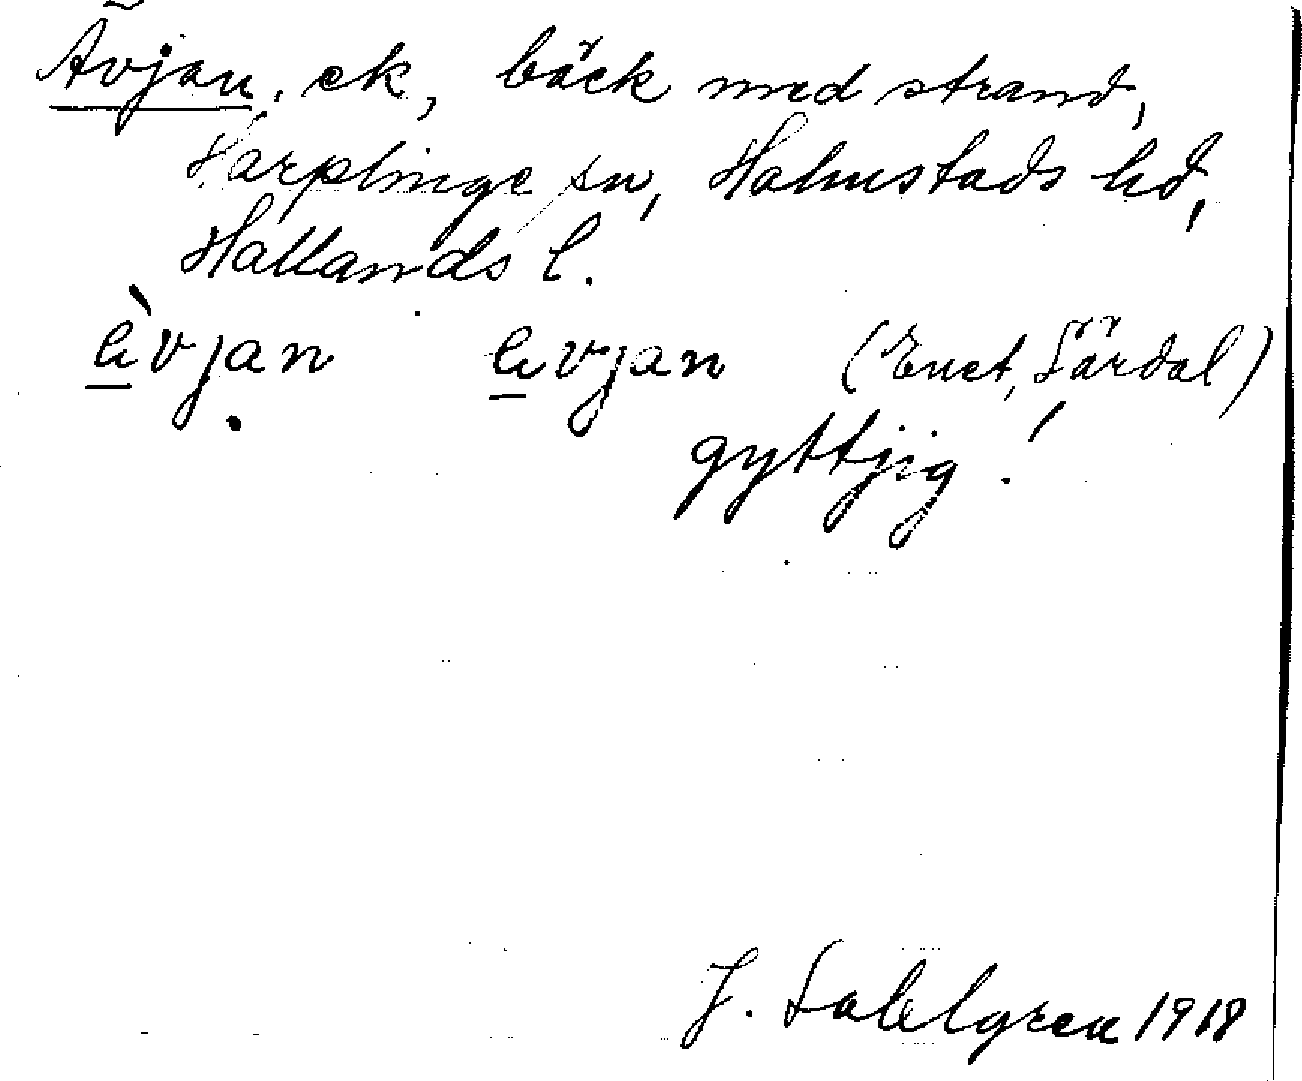 Ävjan, ek, bäck med strand,
Harplinge sn, Halmstads hd,
Hallands l.
ὰvjan avjan (Enet, Särdal)
gyttjig!
J. Sahlgren 1918